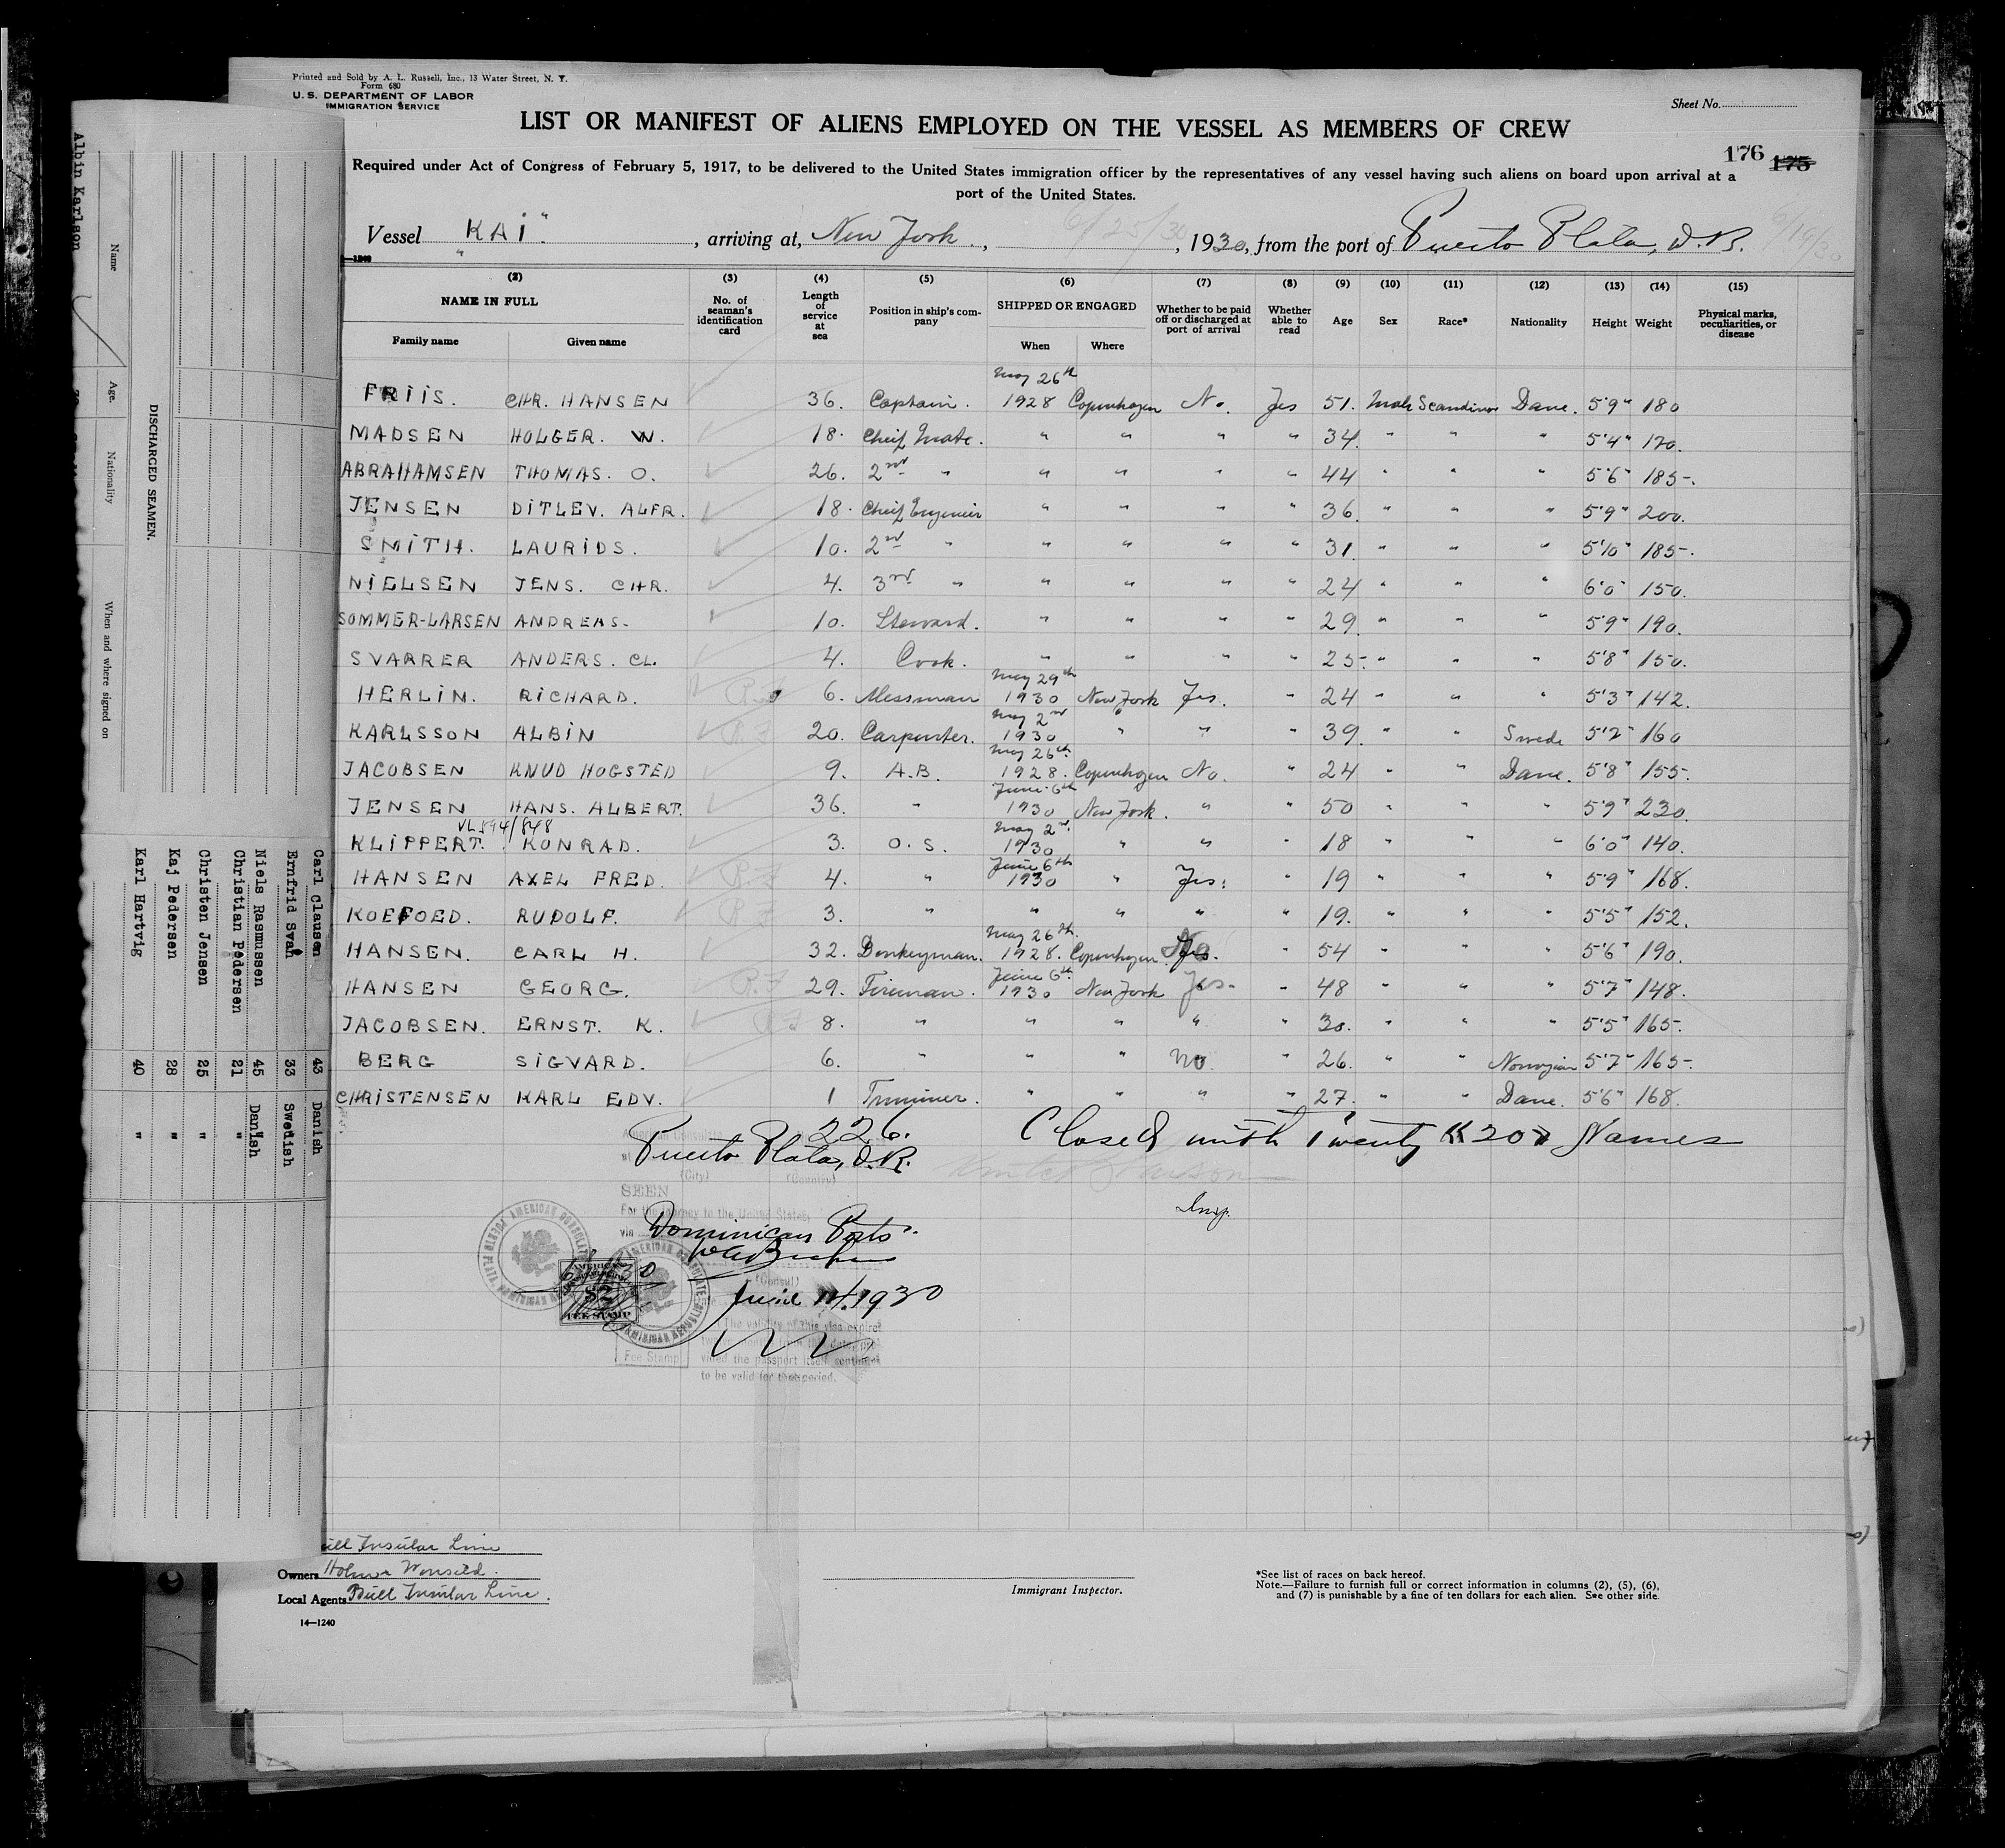 Printed and Sold by A. L. Russell, Inc., 13 Water Street, N. Y.
Form 680
U. S. DEPARTMENT OF LABOR
IMMIGRATION SERVICE
Sheet No.
LIST OR MANIFEST OF ALIENS EMPLOYED ON THE VESSEL AS MEMBERS OF CREW
176 175
Required under Act of Congress of February 5, 1917, to be delivered to the United States immigration officer by the representatives of any vessel having such aliens on board upon arrival at a
port of the United States.
Vessel "KAI" , arriving at, New York , 6/25/30 , 1930, from the port of Puerto Plata, D.R. 6/19/30
(2) (3) (4) (5) (6) (7) (8) (9) (10) (11) (12) (13) (14) (15)
NAME IN FULL
Family name Given name
No. of seaman's identification card
Length of service at sea
Position in ship's company
SHIPPED OR ENGAGED
When Where
Whether to be paid off or discharged at port of arrival
Whether able to read
Age Sex Race* Nationality Height Weight
Physical marks, peculiarities, or disease
FRIIS. CHR. HANSEN 36. Captain. May 26th 1928 Copenhagen No. Yes 51. Male Scandinav Dane. 5'9" 180
MADSEN HOLGER. W. 18. Cheif Mate. " " " " 34. " " " 5'4" 170.
ABRAHAMSEN THOMAS. O. 26. 2nd " " " " " 44 " " " 5'6" 185-.
JENSEN DITLEV. ALFR. 18. Cheif Engenier " " " " 36. " " " 5'9" 200.
SMITH. LAURIDS. 10. 2nd " " " " " 31. " " " 5'10" 185-.
NIELSEN JENS. CHR. 4. 3rd " " " " " 24 " " " 6'0" 150.
SOMMER-LARSEN ANDREAS. 10. Steward. " " " " 29. " " " 5'9" 190.
SVARRER ANDERS. CL. 4. Cook. " " " " 25-. " " " 5'8" 150.
HERLIN. RICHARD. 6. Messman May 29th 1930 New York Yes. " 24 " " " 5'3" 142.
KARLSSON ALBIN 20. Carpenter. May 2nd 1930 " " " 39. " " Swede 5'7" 160
JACOBSEN KNUD HOGSTED 9. A.B. May 26th 1928. Copenhagen No. " 24 " " Dane. 5'8" 155-.
JENSEN HANS. ALBERT. 36. " June 6th 1930 New York. " " 50 " " " 5'9" 230.
VL 894/848
KLIPPERT. KONRAD. 3. O.S. May 2nd 1930 " " " 18 " " " 6'0" 140.
HANSEN AXEL FRED. P.F 4. " June 6th 1930 " Yes. " 19 " " " 5'9" 168.
KOEFOED. RUDOLF. P.F 3. " " " " " 19. " " " 5'5" 152.
HANSEN. CARL H. 32. Donkeyman. May 26th. 1928. Copenhagen. Yes. " 54 " " " 5'6" 190.
HANSEN GEORG. P.F 29. Fireman. June 6th 1930 New York Yes. " 48 " " " 5'7" 148.
JACOBSEN. ERNST. K. P.F 8. " " " " " 30. " " " 5'5" 165-.
BERG SIGVARD. 6. " " " No. " 26. " " Norwegian 5'7" 165-.
CHRISTENSEN KARL EDV. 1 Trimmer. " " " " 27. " " Dane. 5'6" 168.
226.
Closed with Twenty "20" Names
Puerto Plata, D.R.
(City) (Country)
SEEN
For the journey to the United States,
via Dominican Ports
Insp.
(Consul)
June 14, 1930
(The validity of this visa expires
vided the passport itself continues
to be valid for that period.
Fee Stamp
AMERICAN CONSULATE
FEE STAMP
Bull Insular Line
Owners Holm & Wonsild.
Local Agents Bull Insular Line.
14—1240
Immigrant Inspector.
*See list of races on back hereof.
Note.—Failure to furnish full or correct information in columns (2), (5), (6),
and (7) is punishable by a fine of ten dollars for each alien. See other side.
DISCHARGED SEAMEN.
Name Age. Nationality When and where signed on
Carl Clausen 43 Danish
Ernfrid Svan 33 Swedish
Niels Rasmussen 45 Danish
Christian Pedersen 21 "
Christen Jensen 25 "
Kaj Pedersen 28 "
Karl Hartvig 40 "
Albin Karlson